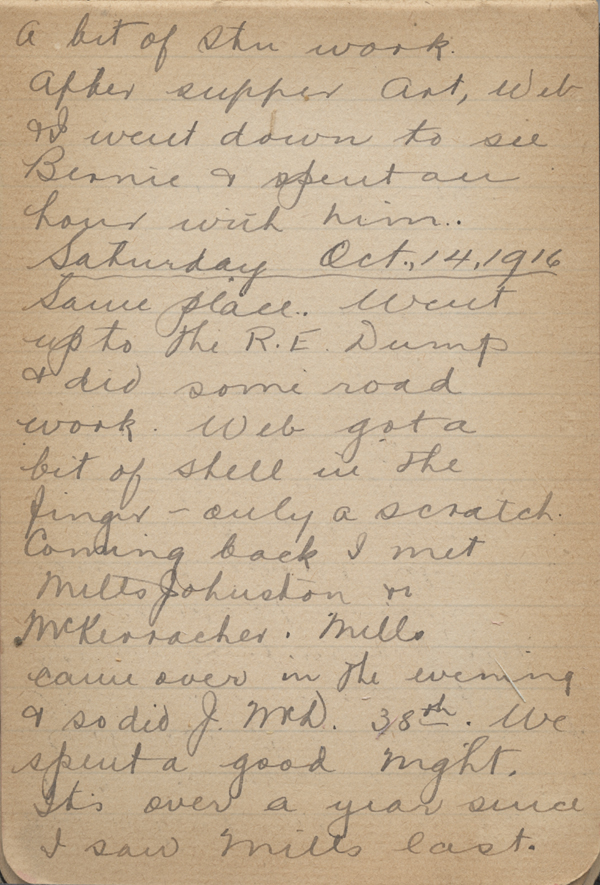 A bit of work.
After supper Art, Web
& I went down to see
Bernie & spent an
hour with him..
Saturday Oct., 14, 1916
Same place. Went
up to the R.E. Dump
& did some road
work. Web got a
bit of shell in the
finger - only a scratch.
Coming back I met
Mills Johnston &
McKerracher. Mills
came over in the evening
& so did J. McD. 38th. We
spent a good night.
It's over a year since
I saw Mills last.